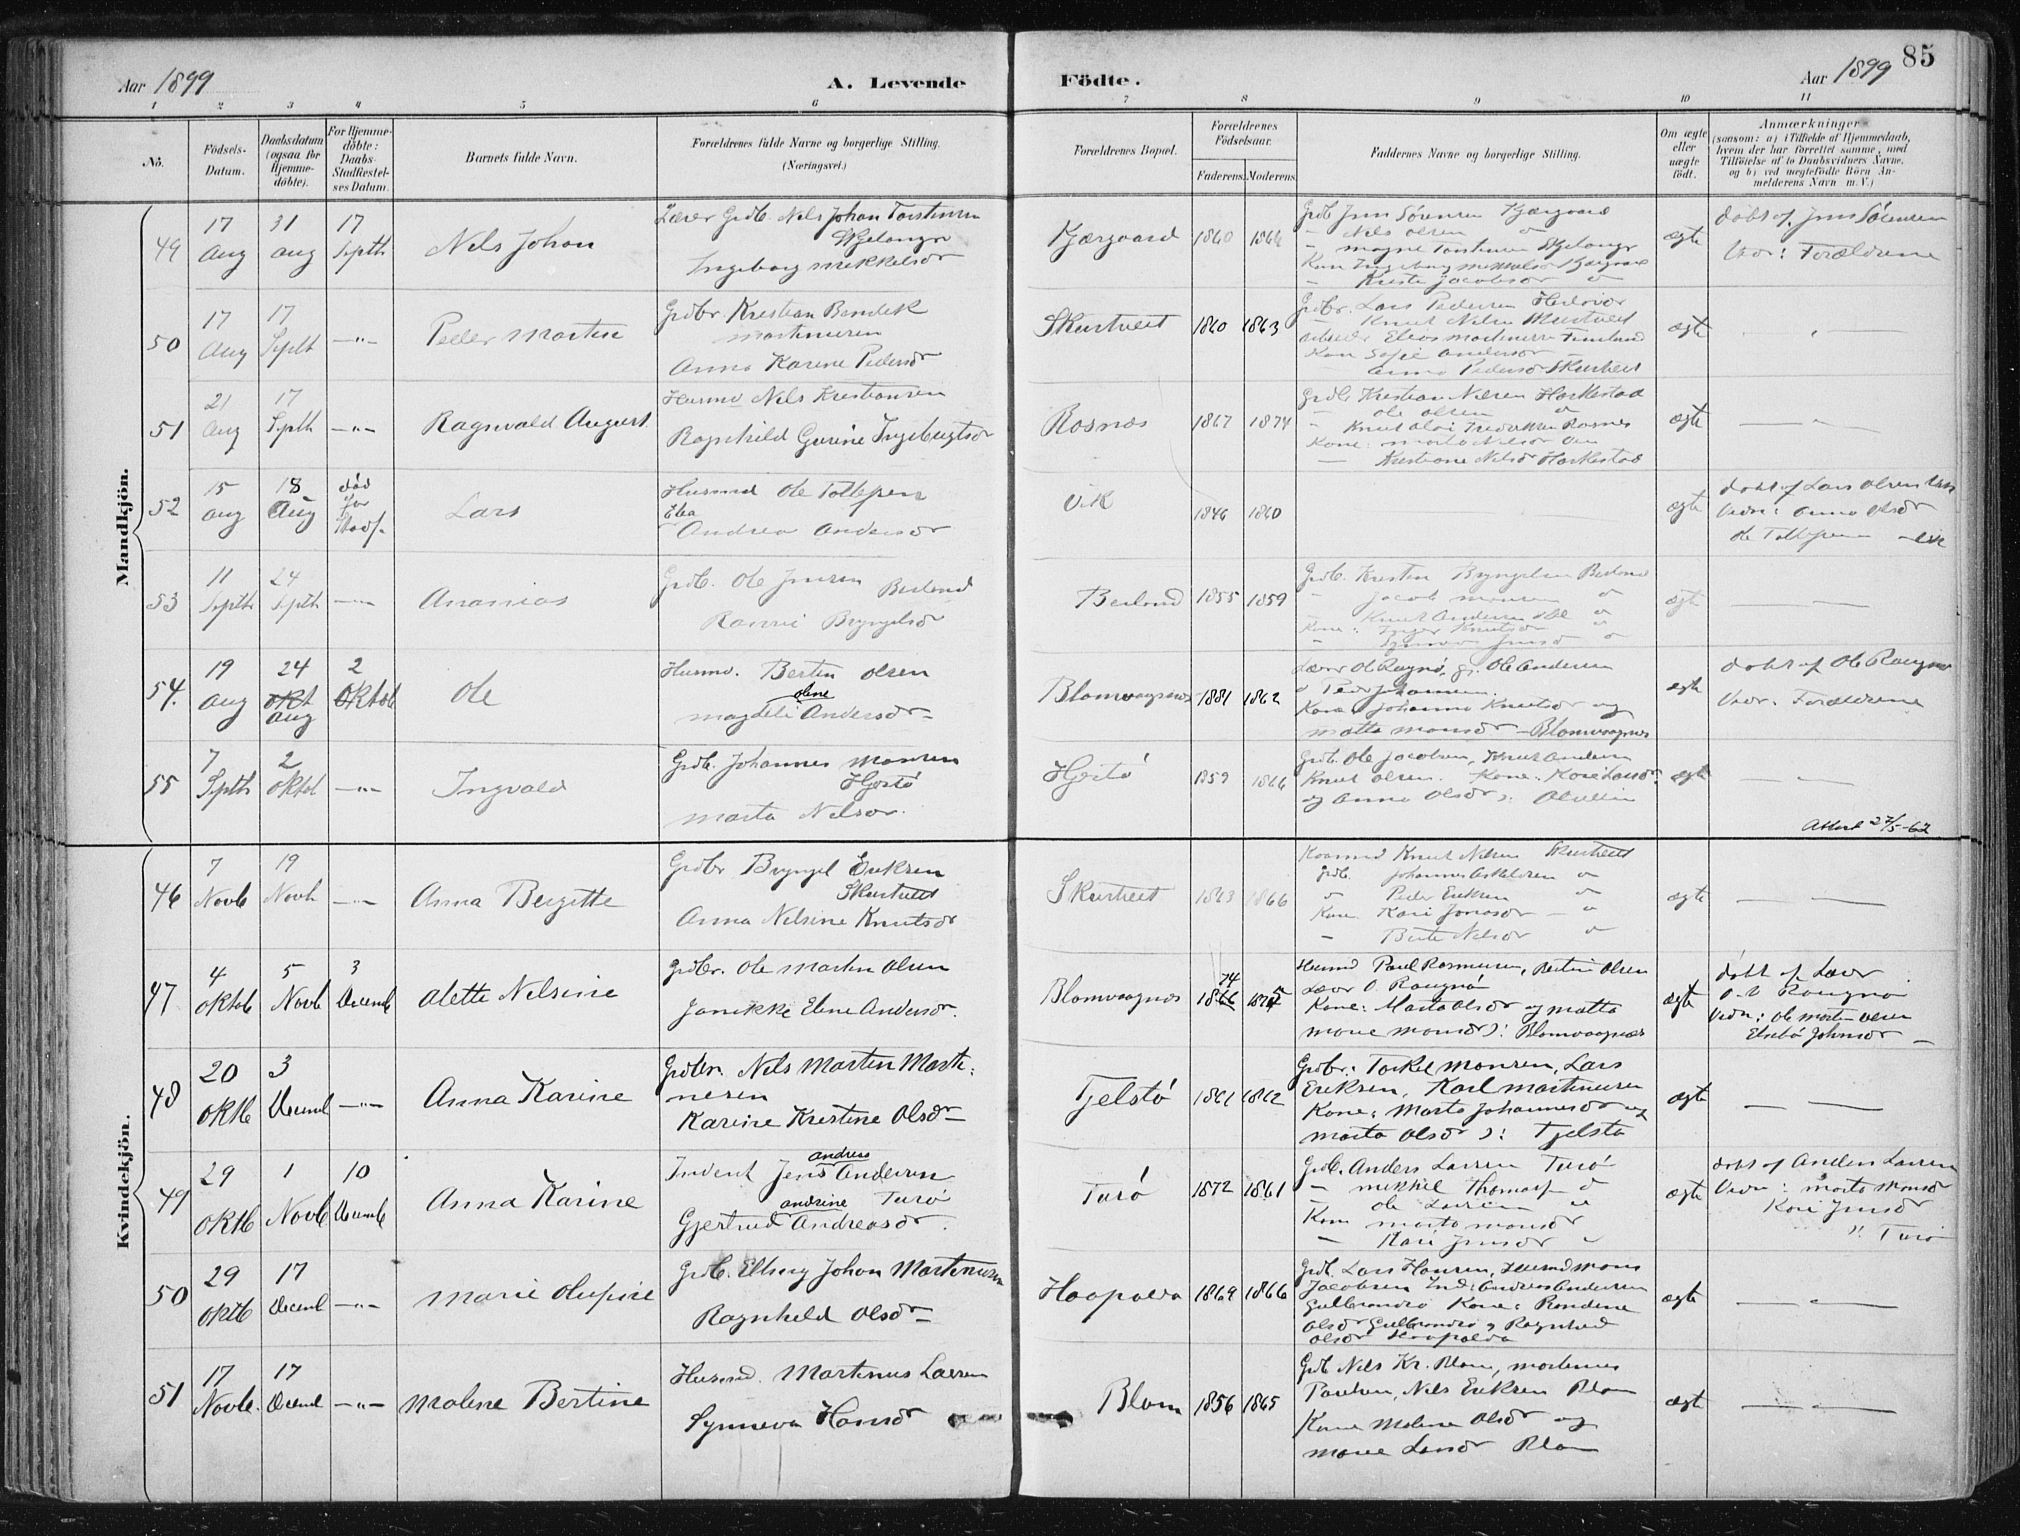 Aar 1899
A. Levende
Födte.
Aar 1899
85
1 2 3 4 5 6 7 8 9 10 11
No.
Födsels-Datum.
Daabsdatum (ogsaa for Hjemme-döbte).
For Hjemme-döbte: Daabs-Stadfæstel-ses Datum.
Barnets fulde Navn.
Forældrenes fulde Navne og borgerlige Stilling.
(Næringsvei.)
Forældrenes Bopæl.
Forældrenes Födselsaar.
Faderens. Moderens.
Faddernes Navne og borgerlige Stilling.
Om ægte eller uægte födt.
Anmærkninger
(saasom: a) i Tilfælde af Hjemmedaab, hvem der har forrettet samme, med Tilföielse af to Daabsvidners Navne, og b) ved uægtefödte Börn An-melderens Navn m. V.)
Mandkjön.
49
17 Aug
31 aug
17 Septb
Nels Johan
Lærer Grdb. Nels Johan Torstensen
Ingeborg Mikkelsdr
Kjærgaard
1860
Grdb Jens Sørensen Kjærgaard
- Nils Olsen do
- Magne Torstensen
- Kriste Jacobsdr do
ægte
døbt af Jens Sørensen
Vidn: Forældrene
50
17 Aug
17 Septb
-"-
Peder Martin
Grdbr Kristian Bendik
Martinusen
Anna Karine Pedersdr
Skurtveit
1860 1863
Grdbr. Lars Pedersen
- Knut Nilsen Skurtveit
Kone Sofie Andersdr
Anna Pedersdr Skurtveit
ægte
51
21 Aug
17 Septb
-"-
Ragnvald August
Husmd Nels Kristiansen
Ragnhild Gurine Ingebrigtsdr
Rosnes
1867 1874
Grdb Kristian Nilsen Harkestad
- Ole Olsen do
Kone: Marta Nilsdr
- Kristiane Nilsdr Harkestad
ægte
52
15 aug
18 Aug
død før Stadf.
Lars
Husmd Ole Tollefsen
Elea
Andrea Andersdr
Vik
1846 1860
ægte
døbt af Lars Olsen Vik
Vidn: Anna Olsdr
Ole Tollefsen - Vik
53
11 Septb
24 Septb
Ananias
Grdb. Ole Jensen Berland
Rannei Bryngelsdr
Berland
1855 1859
Grdb. Kristen Bryngelsen Berland
- Jacob Monsen do
- Knut Andersen
Kone: Inger Knutsdr
ægte
54.
19 Aug
24 okt aug
2 Oktob
Ole
Husmd. Bertin Olsen
olene
Magdeli Andersdr -
Blomvaagnes
1881 1862
Lærer Ol Raugnø, gj. Ole Andersen
Peder Johannesen.
Kone: Johanna Knutsdr og
Matta Monsdr - Blomvaagnes
ægte
døbt af Ole Raugnø
Vidn: Forældrene
55
7 Septb
2 Oktob
-"-
Ingvald
Grdb. Johannes Monsen
Hjertø
Marta Nelsdr.
Hjertø
1859 1866
Grdb. Ole Jacobsen, Knut Andersen
Knut Olsen. Kone: Kari Larsdr.
og Anna Olsdr
ægte
Attest 27/5-62
Kvindekjön.
46
7 Novb
19 Novb
Anna Bergitte
Grdbr Bryngel Eriksen
Skurtveit
Anna Nelsine Knutsdr
Skurtveit
1863 1866
Knut Nilsen Skurtveit
Grdb. Johannes Askeldsen do
Peder Eriksen do
Kone Kari Jonasdr - do
- Berte Nelsdr do
ægte
47
4 Oktob
5 Novb
3 Decemb
Alette Nelsine
Grdbr. Ole Martin Olsen
Janikke Elene Andersdr.
Blomvaagnes
74
1866
Husmd Paul Rasmussen, Bertin Olsen
Lærer O Raugnø
Kone: Marta Olsdr og Matta
Marie Monsdr): Blomvaagnes
ægte
døbt af Lærer
O. Raugnø
Vidn: Ole Martin Olsen
Elsebø Johnsdr -
48
20 Oktb
3 Decemb
-"-
Anna Karine
Grdbr. Nels Martin Marti-
nesen
Karine Kristine Olsdr -
Tjelstø
1861 1862
Grdbr: Torkel Monsen, Lars
Eriksen, Karl Martinusen
Kone: Marta Johannesdr og
Marta Olsdr ): Tjelstø
ægte
49
29 Oktb
1 Novb
10 Decemb
Anna Karine
andreas
Inderst Jens Andersen
andrine Turø
Gjertrud Andreasdr.
Turø
1872 1861
Grdb. Anders Larsen Turø
- Mikkel Thomas do
Ole Larsen
Kone Marta Monsdr
- Kari Jensdr
ægte
døbt af Anders Larsen
Vidn: Marta Monsdr
Kari Jensdr
): Turø
50
29 Oktb
17 Decemb
-"-
Marie Olufine
Grdb. Elling Johan Martinusen
Ragnhild Olsdr -
Haapolda
1869 1866
Grdb. Lars Hansen, Husmd Mons
Jacobsen Ind: Andreas Andersen
Gulbrandsø Kone: Randine
Olsdr Gulbrandsø og Ragnhild
Olsdr Haapolda
ægte
51
17 Novb.
17 Decemb
-"-
Malene Bertine
Husmd. Martinus Larsen
Synneva Hansdr
Blom
1856 1865
Grdb Nils Kr. Blom, Martinus
Paulsen, Nils Eriksen Blom
Kone Malene Olsdr og
Marie Larsdr Blom
ægte